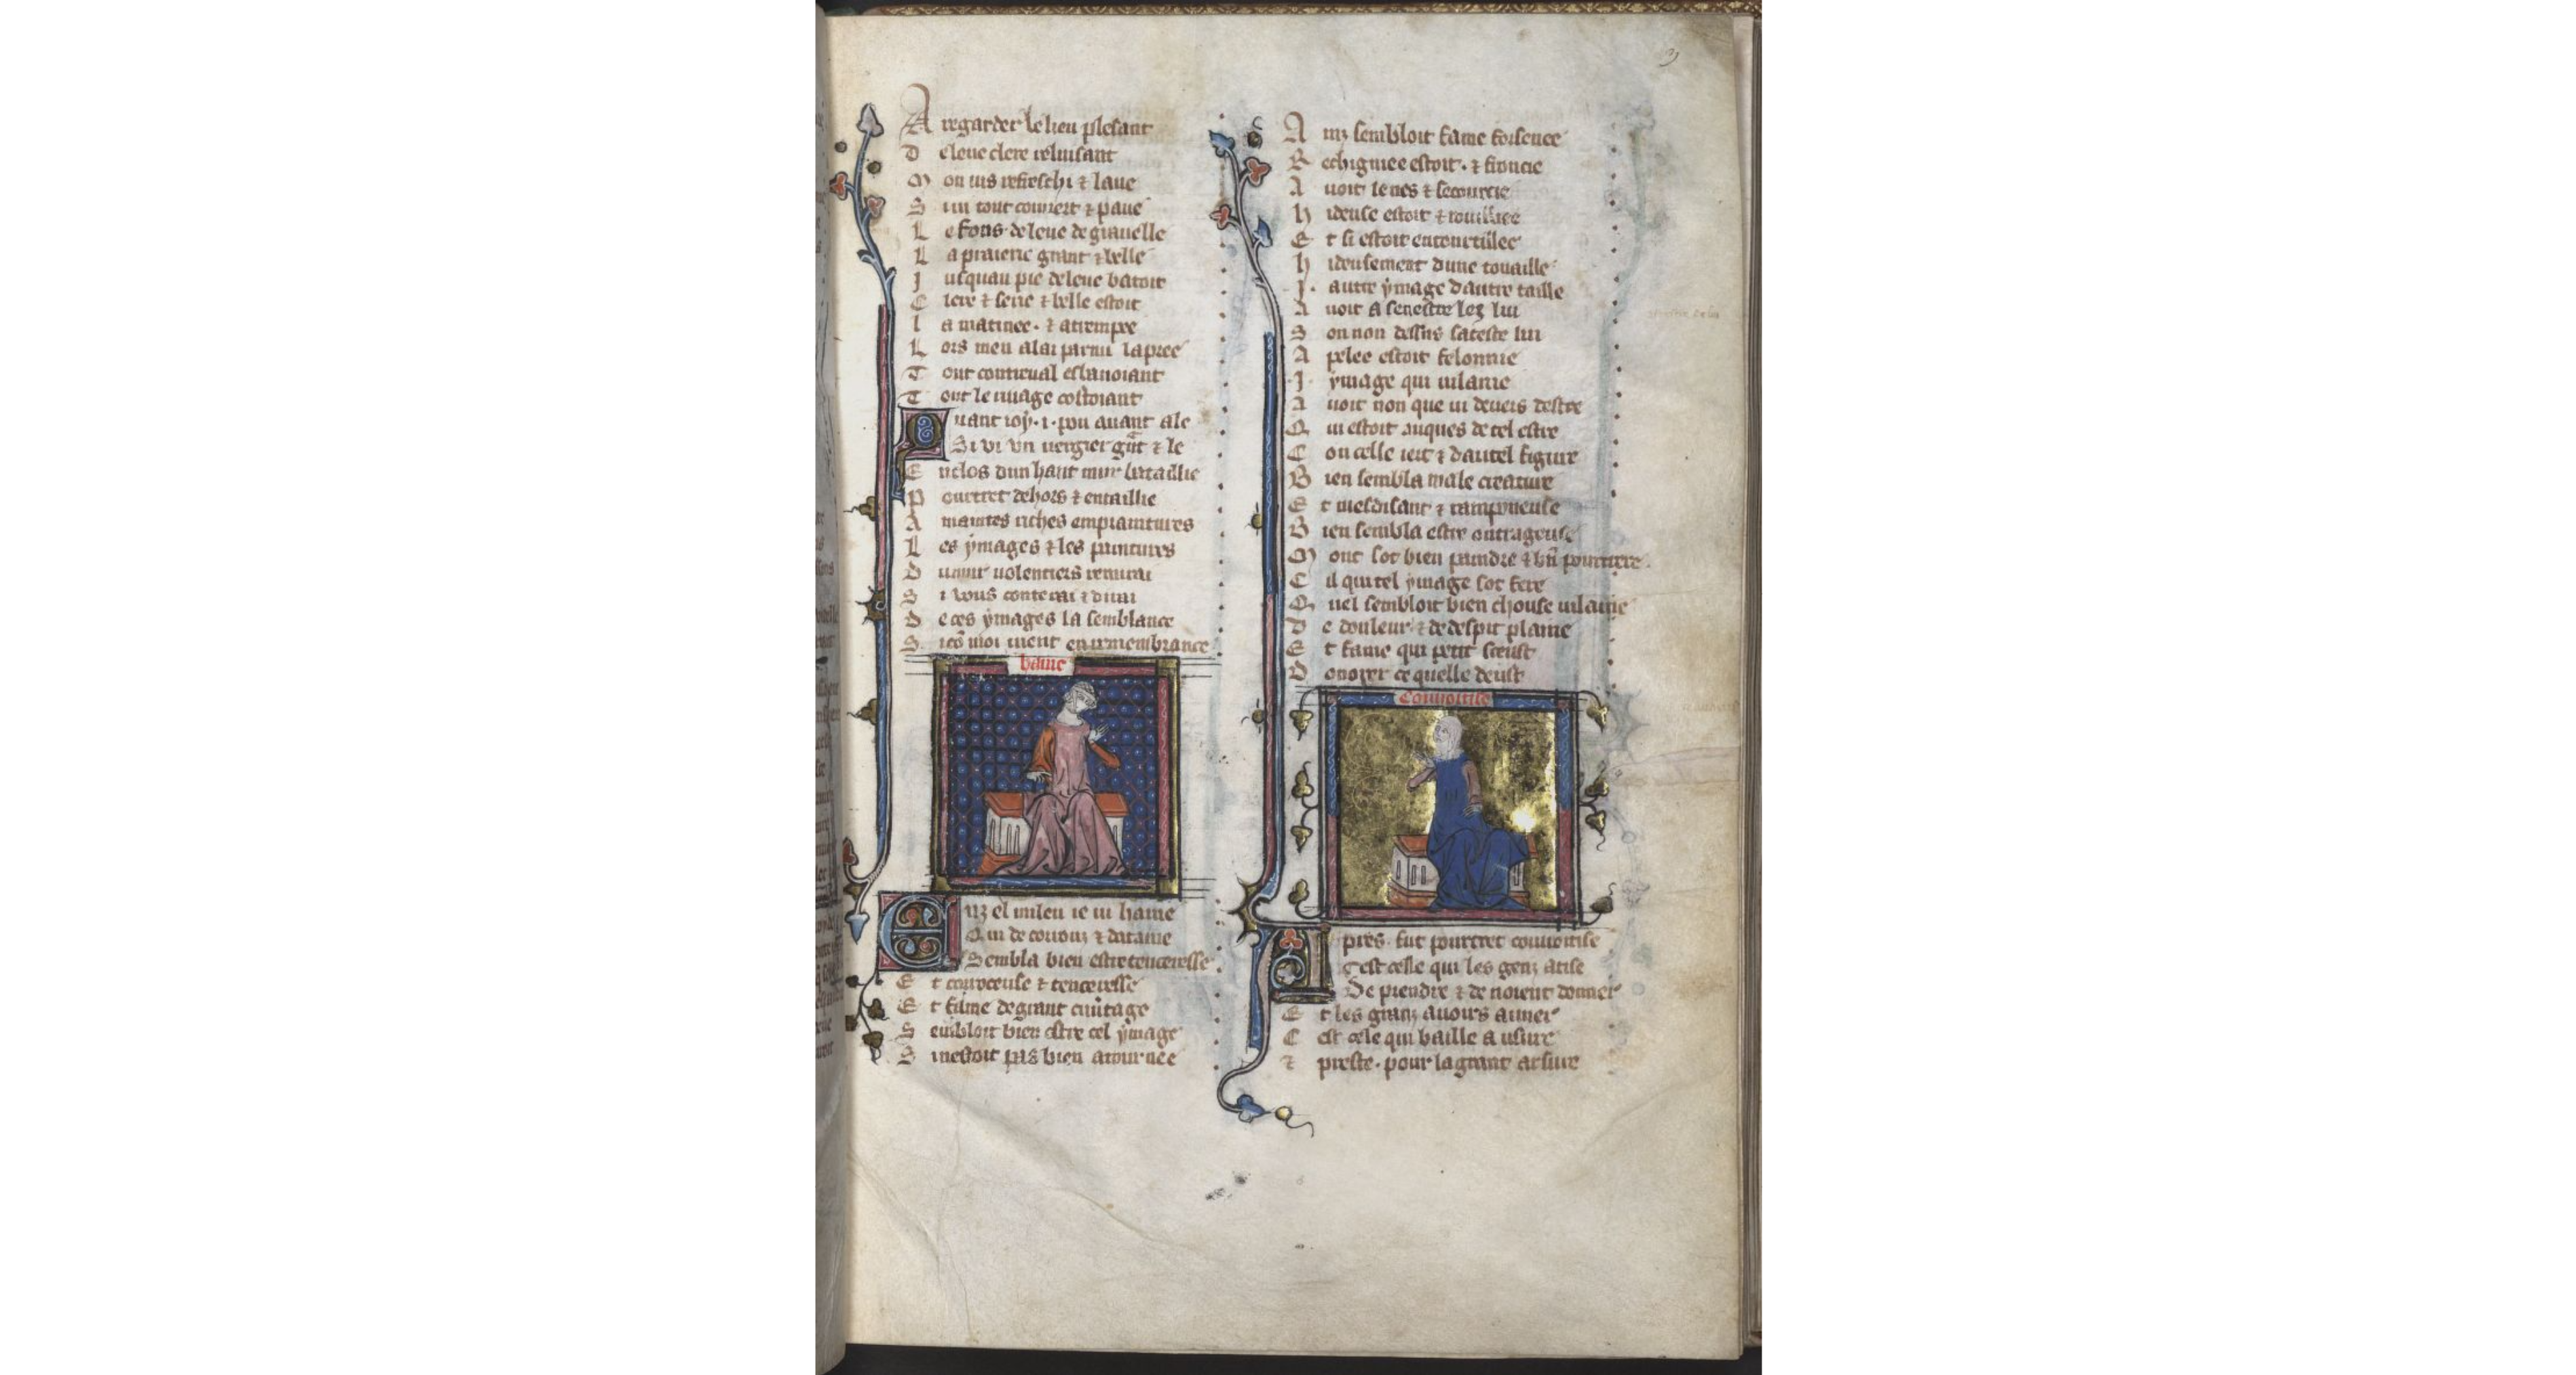 A regarder le lieu plesant
D e leue clere reluisant
M on uis refreschi & laue
S i ui tout couuert & paue
L e fons de leue de grauelle
L a praierie grant & belle
J usquau pie de leue batoit
C lere & serie & belle estoit
L a matinee . & atrempee
L ors men alai parmi la pree
T out contreual esbanoiant
T out le riuage costoiant
Quant ioy . i . pou auant ale
Si vi vn uergier gnt & le
E nclos dun haut mur bataillie
P ourtret dehors & entaillie
A maintes riches empaintures
L es ymages & les paintures
D u mur uolentiers remirai
S i vous conterai & dirai
D e ces ymages la semblance
S i cō moi uient en remembrance
haine
Enz el milieu ie ui haine
Qui de courouz & dataine
Sembla bien estre tenceresse
E t courceuse & tenceresse
E t fame de grant cuuertage
S embloit bien estre cel ymage
S i nestoit pas bien atournee
3
A inz sembloit fame forsenee
R echigniee estoit . & froncie
A uoit le nes & secourcie
H ideuse estoit & rouilliee
E t si estoit entourtillee
H ideusement dune touaille
J . autre ymage dautre taille
A uoit a senestre lez lui
S on non dessus sa teste lui
A pelee estoit felonnie
.J. ymage qui uilanie
A uoit non que ui deuers destre
Q ui estoit auques de tel estre
C on celle iert & dautel figure
B ien sembla male creature
E t mesdisant & ramponeuse
B ien sembla estre outrageuse
M out sot bien paindre & bn̄ pourtrere .
C il qui tel ymage sot fere
Q uel sembloit bien chouse uilaine
D e douleur & de despit plaine
E t fame qui petit sceust
D onorer ce quelle deust
Couuoitise
Apres fut pourtret couuoitise
Cest celle qui les genz atise
De prendre & de noient donner
E t les granz auoirs auner
C est cele qui baille a usure
& preste . pour la grant arsure